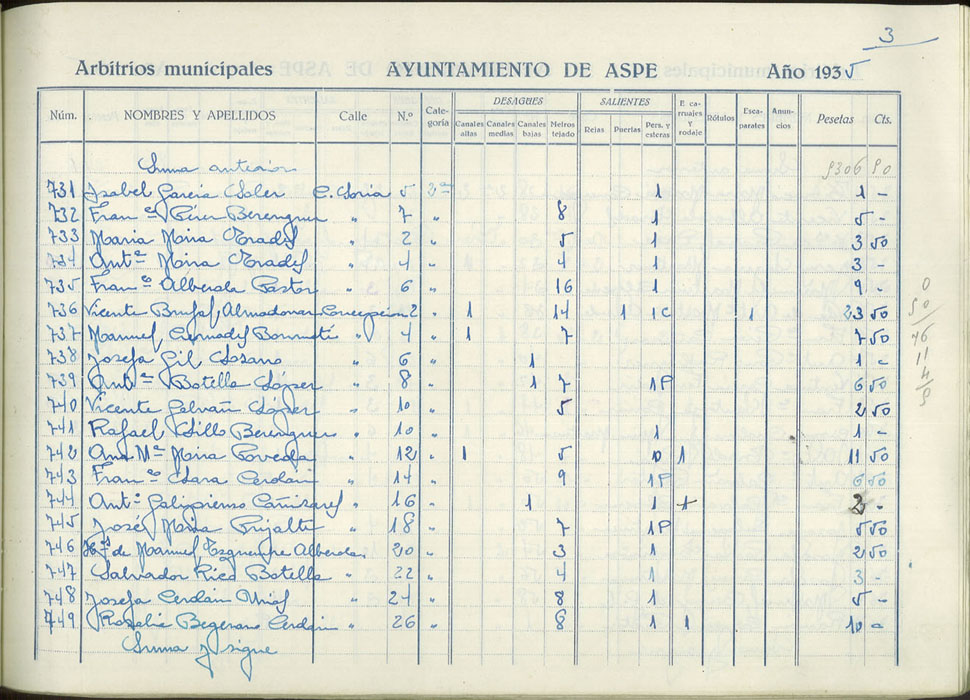 3
Arbitrios municipales AYUNTAMIENTO DE ASPE Año 1935
Núm. NOMBRES Y APELLIDOS Calle N.º Categoría DESAGÜES Canales altas Canales medias Canales bajas Metros tejado SALIENTES Rejas Puertas Pers. y esteras E. carruajes y rodaje Rótulos Escaparates Anuncios Pesetas Cts.
Suma anterior 9306 90
731 Isabel Garcia Soler C. Soria 5 2ª 1 1 -
732 Franco Pérez Berenguer " 7 " 8 1 5 -
733 Maria Mira " 2 " 5 1 3 50
734 Antª Mira " 4 " 4 1 3 -
735 Franco Alberola Pastor " 6 " 16 1 9 -
736 Vicente Almodovar Concepcion 2 " 1 14 1 1C 1 23 50
737 Manuel Bonmatí " 4 " 1 7 7 50
738 Josefa Gil Lozano " 6 " 1 1 -
739 Antº Botella López " 8 " 1 7 1P 6 50
740 Vicente Galvañ López " 10 " 5 2 50
741 Rafael Berenguer " 10 " 1 1 -
742 Ana Mª Mira Poveda " 12 " 1 5 1 11 50
743 Franco Cerdán " 14 " 9 1P 6 50
744 Antº Galipienso Cañizares " 16 " 1 1 + 2 -
745 José Mira Pujalte " 18 " 7 1P 5 50
746 Hos de Manuel Alberola " 20 " 3 1 2 50
747 Salvador Rico Botella " 22 " 4 1 3 -
748 Josefa Cerdán " 24 " 8 1 5 -
749 Rosalia Cerdán " 26 " 8 1 1 10 -
Suma y sigue